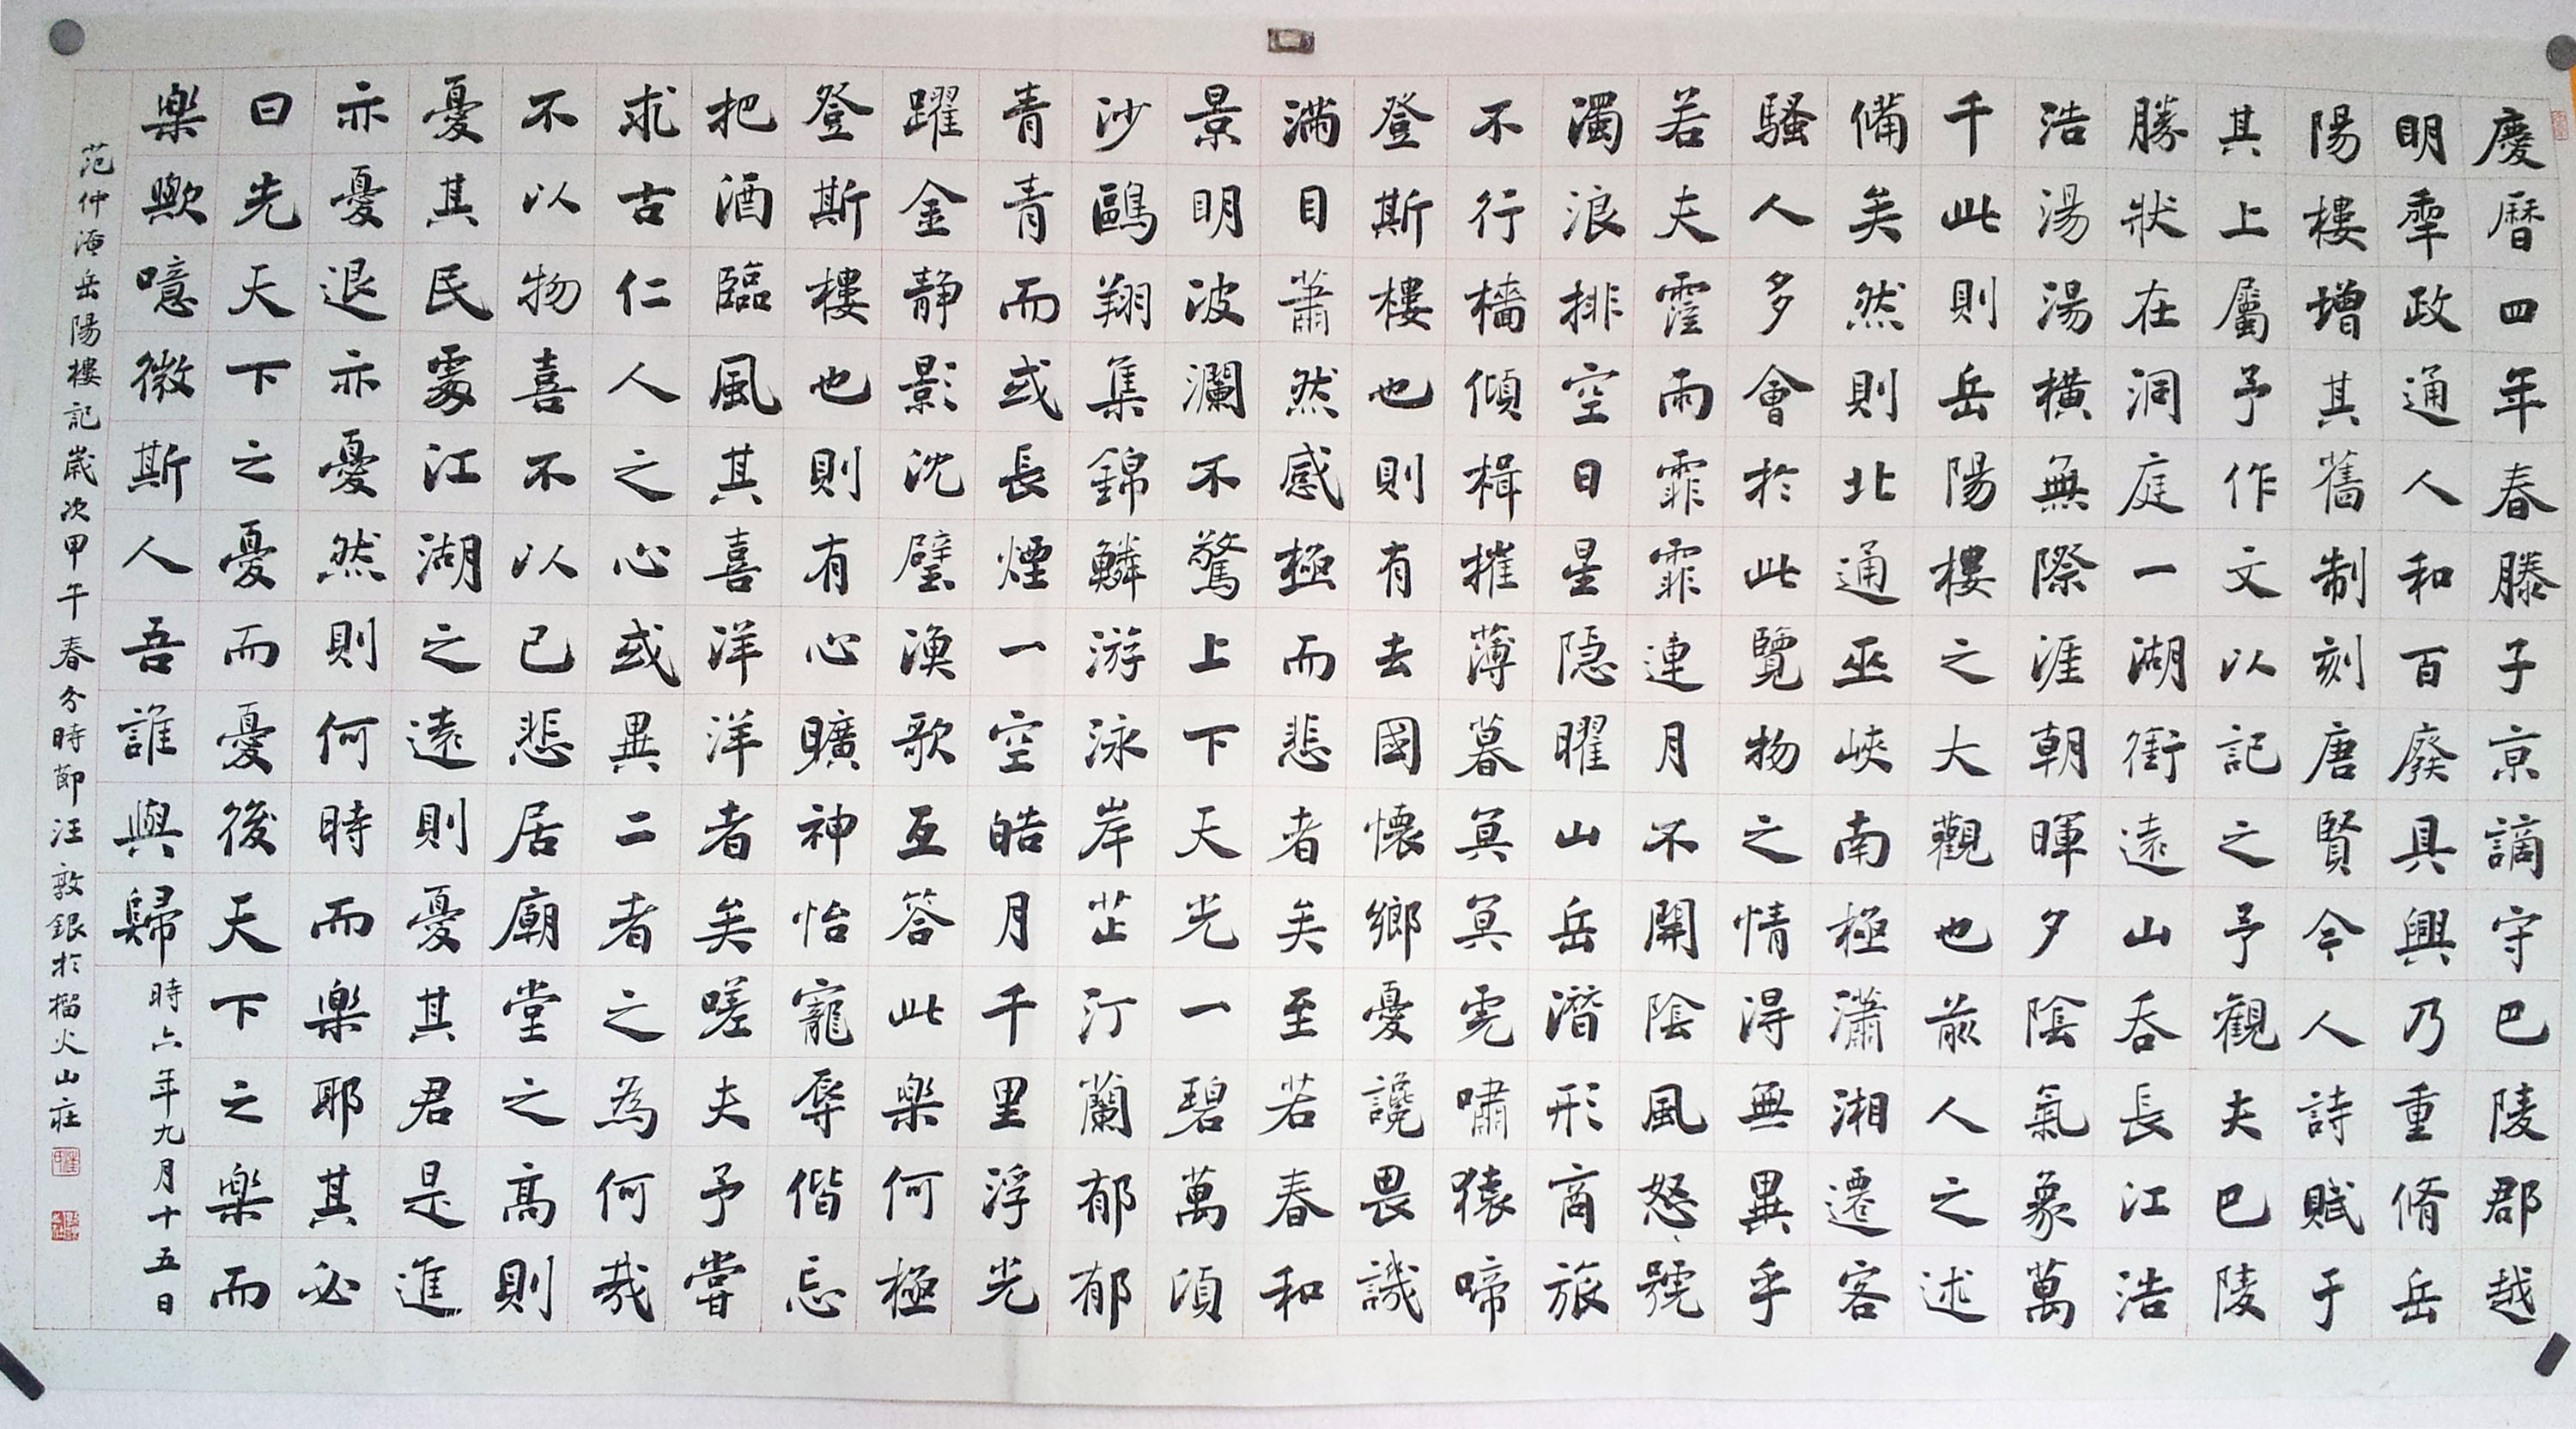 慶暦四年春滕子京謫守巴陵郡越
明秊政通人和百廢具興乃重脩岳
陽樓增其舊制刻唐賢今人詩賦于
其上屬予作文以記之予觀夫巴陵
勝狀在洞庭一湖銜遠山吞長江浩
浩湯湯橫無際涯朝暉夕陰氣象萬
千此則岳陽樓之大觀也前人之述
備矣然則北通巫峽南極瀟湘遷客
騷人多會於此覽物之情得無異乎
若夫霪雨霏霏連月不開陰風怒號
濁浪排空日星隱曜山岳潛形商旅
不行檣傾楫摧薄暮冥冥虎嘯猿啼
登斯樓也則有去國懷鄉憂讒畏譏
滿目蕭然感極而悲者矣至若春和
景明波瀾不驚上下天光一碧萬頃
沙鷗翔集錦鱗游泳岸芷汀蘭郁郁
青青而或長煙一空皓月千里浮光
躍金靜影沈璧漁歌互答此樂何極
登斯樓也則有心曠神怡寵辱偕忘
把酒臨風其喜洋洋者矣嗟夫予嘗
求古仁人之心或異二者之為何哉
不以物喜不以已悲居廟堂之高則
憂其民處江湖之遠則憂其君是進
亦憂退亦憂然則何時而樂耶其必
曰先天下之憂而憂後天下之樂而
樂歟噫微斯人吾誰與歸時六年九月十五日
范仲淹岳陽樓記歲次甲午春分時節汪敦銀於榴火山莊